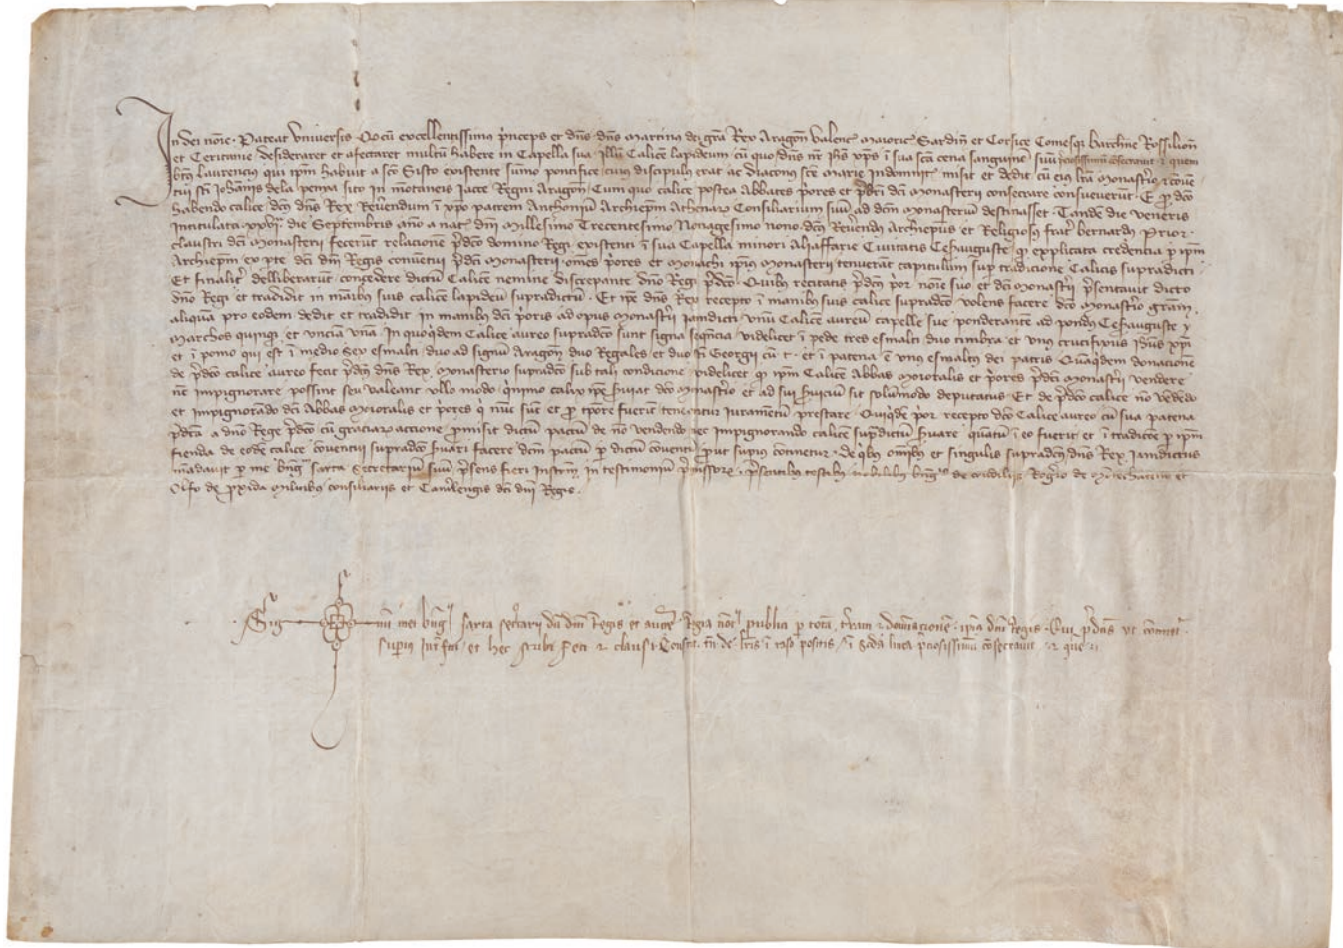 In dei no͞ie · Pateat Universis · Qḋ cū excellentissimus p̃nceps et dñs · dñs Martinus dei gr̃a Rex Aragoñ Valenc̃ Maioric̃ Sardiñ et Corsice Comesq̃ Barchñe Rossilioñ
et Ceritanie · desideraret et afectaret multū habere in Capella sua · Illū Calicē lapideum cū quo dñs nr̃ ih̃s xp̃s ĩ sua sc̃a cena sanguinē suū p̃ciosissimū cõsecravit · et quem
bt̃us Laurencius qui ip̃m habuit a sc̃o Sisto existente sūmo pontifice cuius discipulus erat ac diaconus sc̃e Marie Indomnica misit et dedit cū eius lr̃a Monast̃io et cõve
tui sc̃i Ioh̃anis dela penna sito in mõtaneis Iacce Regni Aragoñ · Cum quo calice postea Abbates p̃ores et p̃sb̃ri dc̃i monasterii consecrare consueverūt · E pro dc̃o
habendo calice dc̃us dñs Rex Reṽendum ĩ xp̃o patrem Anthoniū Archiep̃m Athenar̃ Consiliarium suū ad dc̃m monasteriū destinasset · Tandē die veneris
Intitulata xxvi die Septembris año a nat̃ dñi Millesimo Trecentesimo Nonagesimo nono · dc̃us Reṽendus Archiep̃us et Religiosus frat̃ bernardus Prior ·
claustri dc̃i Monasterii fecerūt relacionē p̃dc̃o domino Regi existenti ĩ sua Capella minori Aliaffarie Civitatis Cesarauguste q̃ explicata credentia p̃ ip̃m
Archiep̃m ex p̃te dc̃i dñi Regis conventui p̃dc̃i Monasterii · om̃es p̃ores et monachi ip̃ius Monasterii tenuerūt capitulum sup̃ tradicione Calicis supradicti ·
Et finalit̃ delliberarūt · concedere dictū Calicē nemine discrepante dño Regi p̃dc̃o · Quibus recitatis p̃dc̃us p̃or noĩe suo et dc̃i monast̃ii p̃sentavit dicto
dño Regi et tradidit in mãibus suis calicē lapideū supradictū · Et ip̃e dñs Rex recepto ĩ manibus suis calice supradc̃o volens facere dc̃o Monast̃io gr̃am
aliquã pro eodem dedit et tradidit in manibus dc̃i p̃oris ad opus Monast̃ii iamdicti unū Calicē aureū capelle sue ponderantē ad pondus Cesarauguste v
Marchos quinq̃ et unciã unã In quoq̃dem Calice aureo supradc̃o sunt signa seq̃ncia videlicet ĩ pede tres esmalti duo timbra et unus crucifixus ih̃us xp̃i
et ĩ pomo qui est ĩ medio sex esmalti duo ad signū Aragoñ duo Regales et duo sc̃i Georgii cū c̃ · et ĩ patena ẽ unus esmaltus dei patris Quãq̃dem donacionē
de p̃dc̃o calice aureo fecit p̃dc̃us dñs Rex Monasterio supradc̃o sub tali condicione videlicet q̃ ip̃m Calicē Abbas moioralis et p̃ores p̃dc̃i Monast̃ii vendere
nec impignorare possint seu valeant ullo modo q̃nimo calix ip̃e s̃viat dc̃o monast̃io et ad sui s̃vicium sit solumodo deputatus Et de p̃dc̃o calice nõ vẽdẽdo
et impignorãdo dc̃i Abbas Moioralis et p̃ores q̃ nūc sūt et pro tp̃ore fuerīt teneantur iuramẽtū prestare · Quiq̃dē p̃or recepto dc̃o Calice aureo cū sua patena
p̃dc̃a a dño Rege p̃dc̃o cū graciar̃ accione p̃misit dictū pactū de nõ vendendo nec impignorando calicē sup̃dictū s̃vare quãtū ĩ eo fuerit et ĩ tradicõe p̃ ip̃m
fienda de eodē calice cõventui supradc̃o s̃vari facere dc̃m pactū p̃ dictū cõventū prout sup̃ius cõtinetur · de q̃bus om̃ibus et singulis supradc̃us dñs Rex iamdictus
mãdavit p̃ me bñg̃ Sarta Secretariū suū p̃sens fieri Instrm̃ in testimoniū p̃missor̃ · p̃sentibus testibus nobilibus Rog̃io de Mõtechateno et
Olfo de p̃xida Militibus consiliariis et Cam̃lengis dc̃i dñi Regis ·
Sig num mei bñg̃ Sarta secr̃arii dc̃i dñi Regis et auct̃e Regia not̃ publici p̃ totã t̃ram et domīacionē ip̃ius dñi Regis · Qui p̃dc̃is
sup̃ius int̃fui et hec scribi feci et clausi Constat de lr̃is ĩ raso positis ĩ sc̃da linea p̃ciosissimū cõsecravit et quē